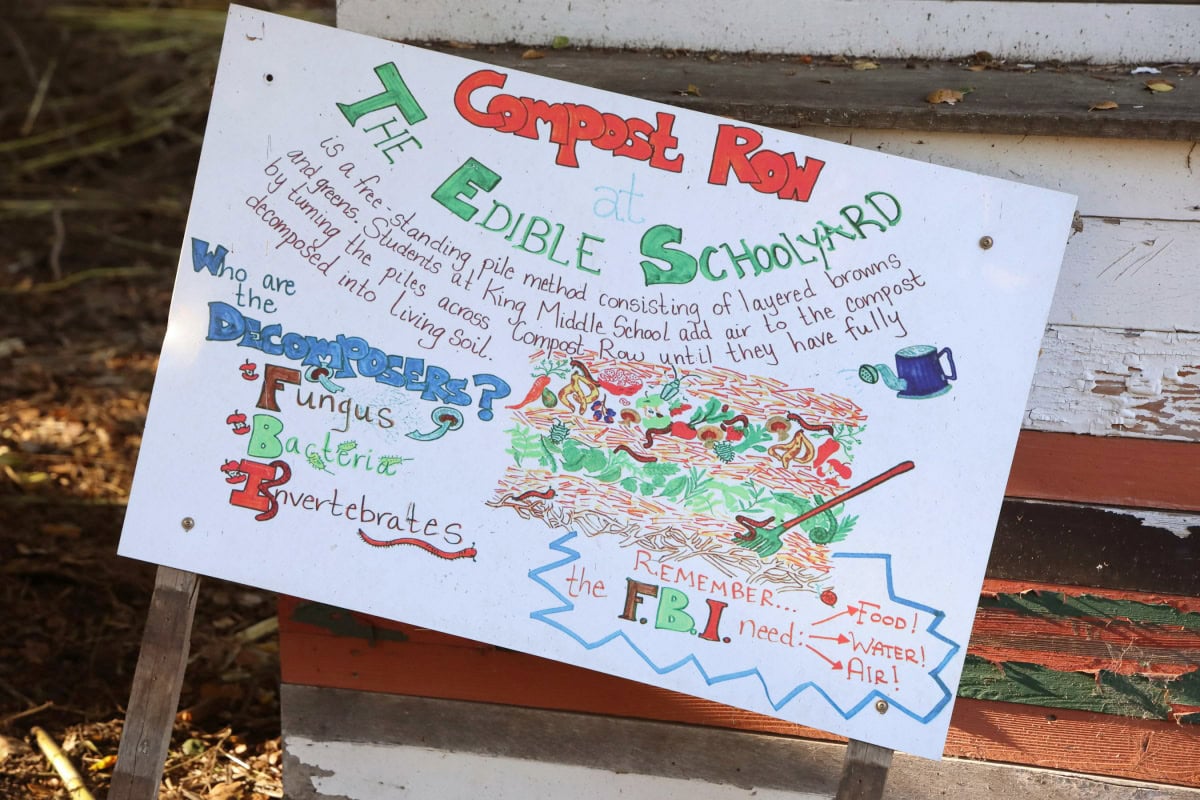 The Compost Row
at
Edible Schoolyard
is a free standing pile method consisting of layered browns
and greens. Students at King Middle School add air to the compost
by turning the piles across Compost Row until they have fully
decomposed into living soil.
Who are
the
Decomposers?
Fungus
Bacteria
Invertebrates
Remember...
the F.B.I. need:
Food!
Water!
Air!